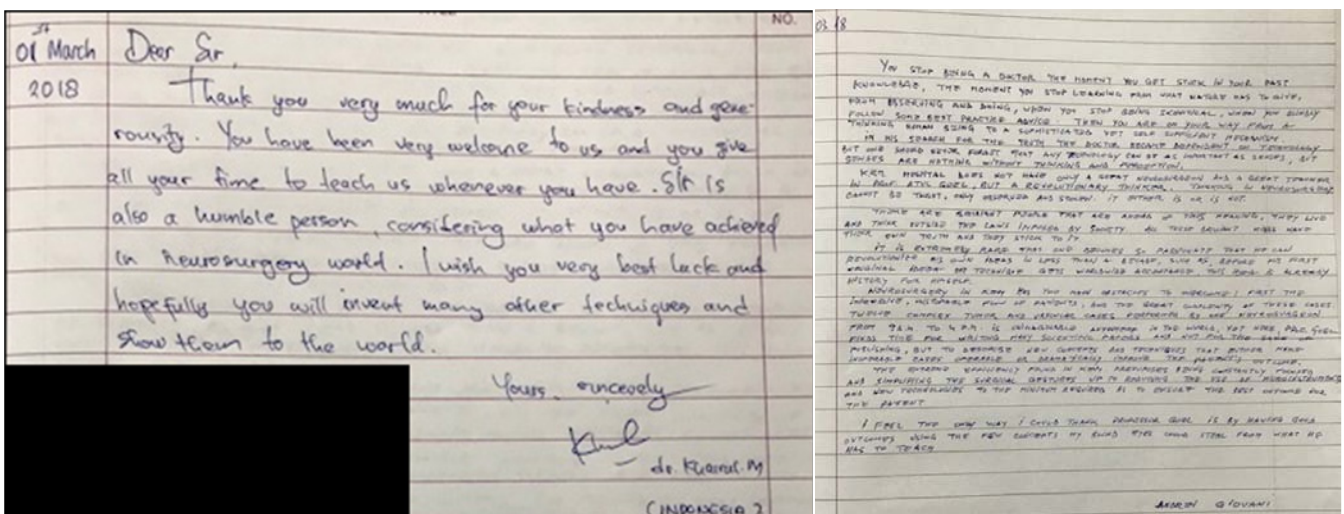 NO.
01st March
2018
Dear Sir,
Thank you very much for your kindness and gene-
rousity. You have been very welcome to us and you give
all your time to teach us whenever you have. Sir is
also a humble person, considering what you have achieved
in neurosurgery world. I wish you very best luck and
hopefully you will invent many other techniques and
show them to the world.
Yours, sincerely
dr. Khairul. M
(INDONESIA)
03 18
YOU STOP BEING A DOCTOR THE MOMENT YOU GET STUCK IN YOUR PAST
KNOWLEDGE, THE MOMENT YOU STOP LEARNING FROM WHAT NATURE HAS TO GIVE,
FROM OBSERVING AND DOING, WHEN YOU STOP BEING SKEPTICAL, WHEN YOU BLINDLY
FOLLOW SOME BEST PRACTICE ADVICE. THEN YOU ARE ON YOUR WAY FROM A
THINKING HUMAN BEING TO A SOPHISTICATED YET SELF SUFFICIENT MECHANISM.
IN HIS SEARCH FOR THE TRUTH THE DOCTOR BECAME DEPENDENT ON TECHNOLOGY
BUT ONE SHOULD NEVER FORGET THAT ANY TECHNOLOGY CAN BE AS IMPORTANT AS SENSES, BUT
SENSES ARE NOTHING WITHOUT THINKING AND PERCEPTION.
KEM HOSPITAL DOES NOT HAVE ONLY A GREAT NEUROSURGEON AND A GREAT TEACHER
IN PROF. ATUL GOEL, BUT A REVOLUTIONARY THINKER. THINKING IN NEUROSURGERY
CANNOT BE TAUGHT, ONLY OBSERVED AND STOLEN. IT EITHER IS OR IS NOT.
THERE ARE BRILLIANT PEOPLE THAT ARE AHEAD OF THIS THEY LIVE
AND THINK OUTSIDE THE LAWS IMPOSED BY SOCIETY. ALL THESE BRILLIANT MINDS HAVE
THEIR OWN TRUTH AND THEY STICK TO IT.
IT IS EXTREMELY RARE THAT ONE BECOMES SO PASSIONATE THAT HE CAN
REVOLUTIONIZE HIS OWN IDEAS IN LESS THAN A DECADE, SUCH AS, BEFORE HIS FIRST
ORIGINAL IDEA OR TECHNIQUE GETS WORLDWIDE ACCEPTANCE, THIS IDEA IS ALREADY
HISTORY FOR HIMSELF.
NEUROSURGERY IN KEM HAS TWO MAIN OBSTACLES TO OVERCOME: FIRST THE
FLOW OF PATIENTS, AND THE GREAT COMPLEXITY OF THESE CASES
TWELVE COMPLEX TUMOR AND VASCULAR CASES PERFORMED BY ONE NEUROSURGEON
FROM 9 A.M TO 4 P.M. IS UNIMAGINABLE ANYWHERE IN THE WORLD, YET HERE, PROF. GOEL
FINDS TIME FOR WRITING MANY SCIENTIFIC PAPERS AND NOT FOR THE SAKE OF
PUBLISHING, BUT TO DESCRIBE NEW CONCEPTS AND TECHNIQUES THAT EITHER MAKE
INOPERABLE CASES OPERABLE OR DRAMATICALLY IMPROVE THE PATIENT'S OUTCOME.
THE EXTREME EFFICIENCY FOUND IN KEM PRESUMES BEING CONSTANTLY
AND SIMPLIFYING THE SURGICAL GESTURES UP TO REDUCING THE USE OF
AND NEW TECHNOLOGIES TO THE MINIMUM REQUIRED AS TO ENSURE THE BEST OUTCOME FOR
THE PATIENT
I FEEL THE ONLY WAY I COULD THANK PROFESSOR GOEL IS BY HAVING GOOD
OUTCOMES USING THE FEW CONCEPTS MY EYES COULD STEAL FROM WHAT HE
HAS TO TEACH
GIOVANI